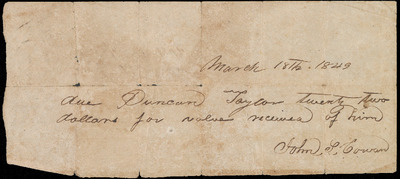 March 18th. 1849
due Duncan Taylor twenty two
dollars for value received of him
John S. Cowan